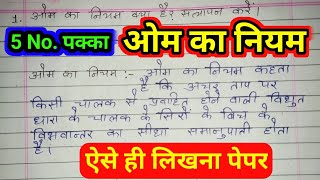 1. ओम का नियम क्या है? सत्यापन करें।
5 No. पक्का
ओम का नियम
ओम का नियम :- ओम का नियम कहता
है कि अचर ताप पर
किसी चालक से प्रवाहित होने वाली विद्युत
धारा के चालक के सिरों के बिच के
विभवान्तर का सीधा समानुपाती होता
है।
ऐसे ही लिखना पेपर